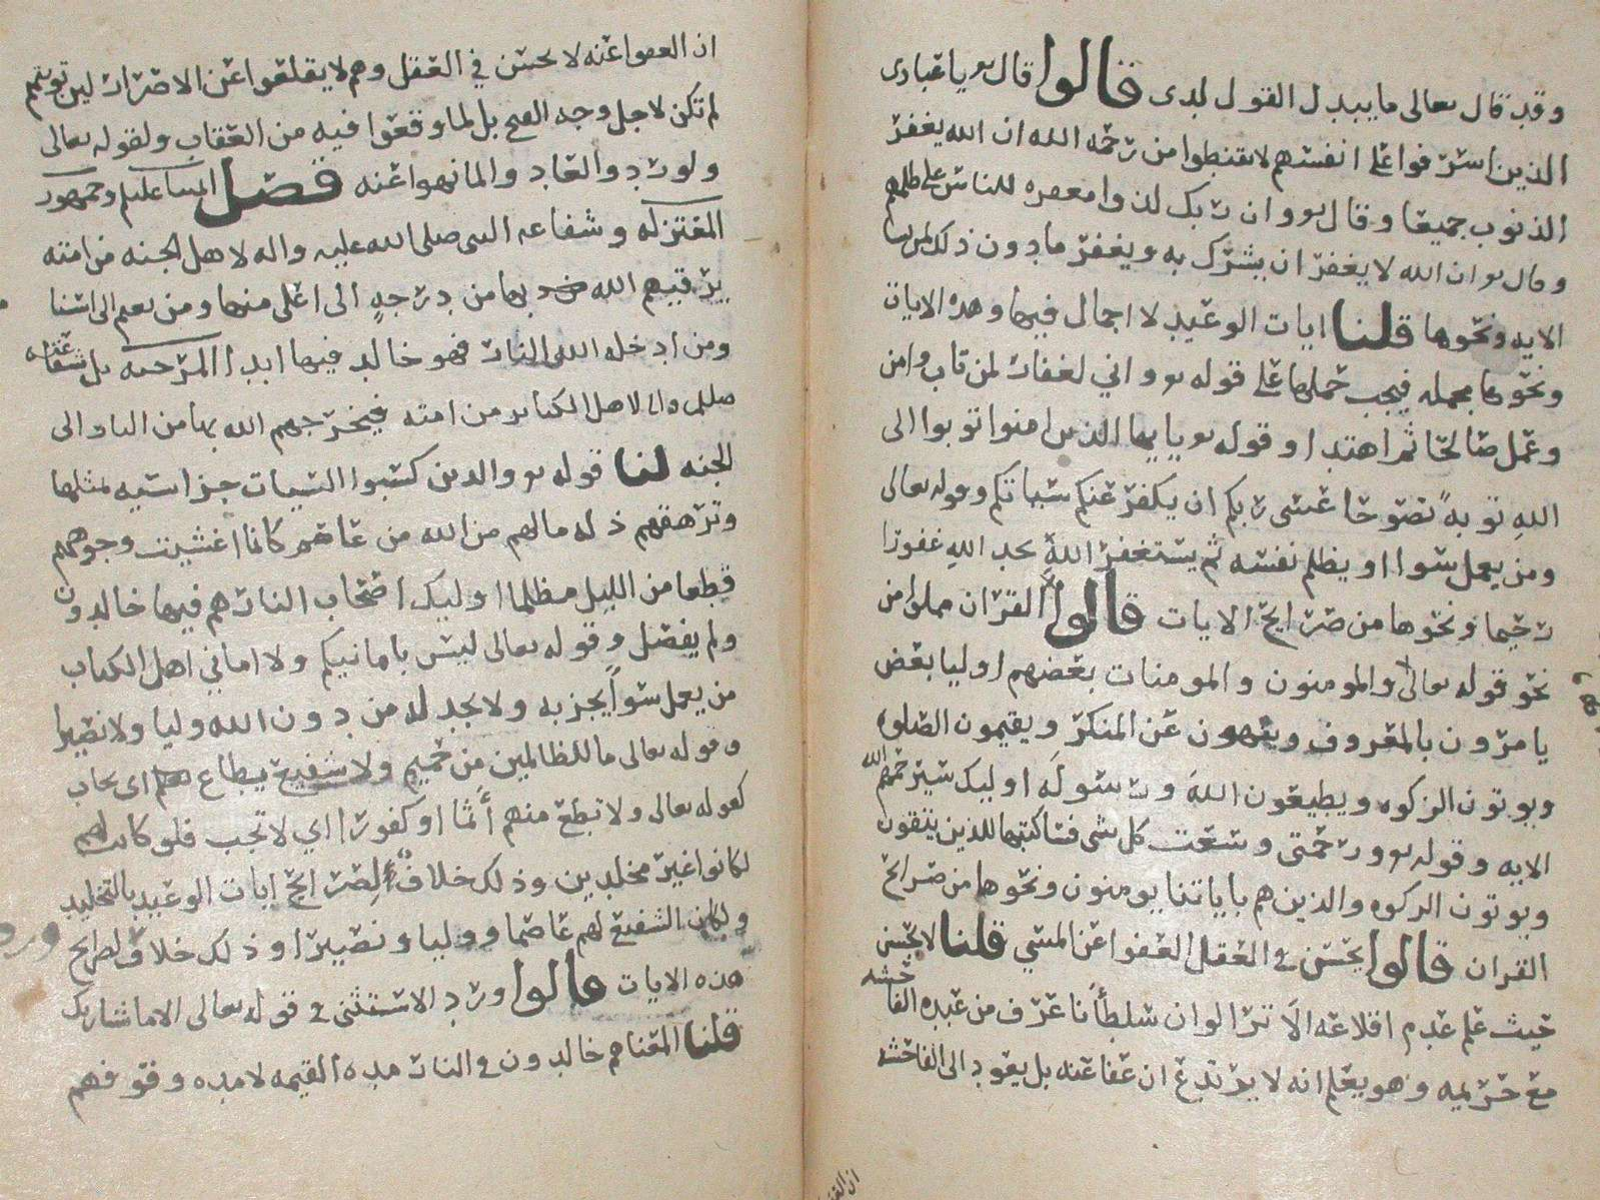 وقد قال تعالى ما يبدل القول لدى قالوا قال تع يا عبادى
الذين اسرفوا على انفسهم لا تقنطوا من رحمة الله ان الله يغفر
الذنوب جميعا وقال تع وان ربك لذوا مغفره للناس على ظلمهم
وقال تع ان الله لا يغفر ان يشرك به ويغفر ما دون ذلك لمن يشا
الايه ونحوها قلنا ايات الوعيد لا اجمال فيها وهذه الايات
ونحوها مجمله فيجب حملها على قوله تع واني لغفار لمن تاب وامن
وعمل صالحا ثم اهتدا وقوله تع يا يها الذين امنوا توبوا الى
الله توبهً نصوحا عسى ربكم ان يكفر عنكم سياتكم وقوله تعالى
ومن يعمل سوا او يظلم نفسه ثم يستغفر الله يجد الله غفورا
رحيما ونحوها من صرايح الايات قالوا القران مملوا من
نحو قوله تعالى والمومنون والمومنات بعضهم اوليا بعض
يامرون بالمعروف وينهون عن المنكر ويقيمون الصلوه
ويوتون الزكوه ويطيعون الله ورسوله اوليك سيرحمهم الله
الايه وقوله تع ورحمتى وسعت كل شى فساكتبها للذين يتقون
ويوتون الزكوه والذين هم باياتنا يومنون ونحوها من صرايح
القران قالوا يحسن في العقل العفوا عن المسي قلنا لا يحسن
حيث علم عدم اقلاعه الا ترا لو ان سلطانا عرف من عبده الفاحشه
مع حريمه وهو يعلم انه لا يرتدع ان عفا عنه بل يعود الى الفاحشه
ان العفوا عنه لا يحسن في العقل وهم لا يقلعوا عن الاضرار لين توبتهم
لم تكن لاجل وجه القبح بل لما وقعوا فيه من العقاب ولقوله تعالى
ولو ردوا لعادوا لما نهوا عنه فصل ايمتنا عليلم وجمهور
المعتزله وشفاعه النبى صلى الله عليه واله لاهل الجنه من امته
يرقيهم الله بها من درجهٍ الى اعلى منها ومن نعيم الى اسنا
ومن ادخله الله النار فهو خالد فيها ابدا المرجيه بل شفاعته
صللم والا لاهل الكباير من امته فيخرجهم الله بها من النار الى
الجنه لنا قوله تع والذين كسبوا السيات جزا سيه بمثلها
وترهقهم ذله مالهم من الله من عاصم كانما اغشيت وجوههم
قطعا من الليل مظلما اوليك اصحاب النار هم فيها خالدون
ولم يفصل وقوله تعالى ليس بامانيكم ولا اماني اهل الكتاب
من يعمل سواً يجز به ولا يجد له من دون الله وليا ولا نصيرا
وقوله تعالى ما للظالمين من حميم ولا شفيع يطاع اى يجاب
كقوله تعالى ولا تطع منهم اثما او كفورا اي لا تجب فلو كانت لهم
لكانوا غير مخلدين وذلك خلاف لصرايح ايات الوعيد بالتخليد
ولكان الشفيع لهم عاصما ووليا ونصيرا وذلك خلاف لصرايح
هذه الايات قالوا ورد الاستثنى في قوله تعالى الا ما شا ربك
قلنا المعنا هم خالدون في النار مده القيمه لا مده وقوفهم